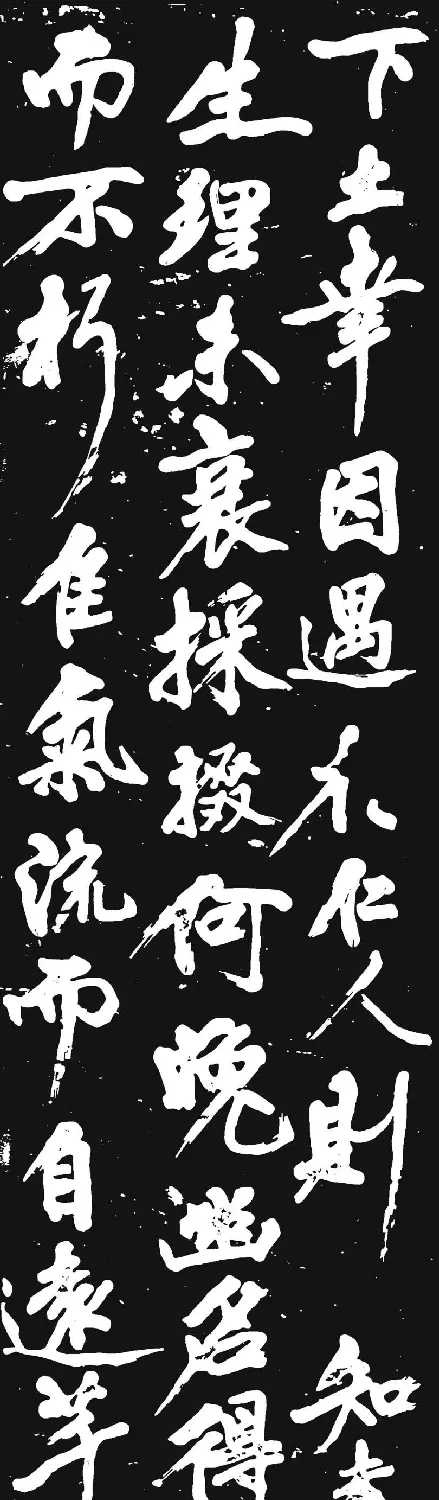 下土幸因遇不仁人則知
生理未衰採掇何晚逃名得
而不朽隹氣流而自遠羊